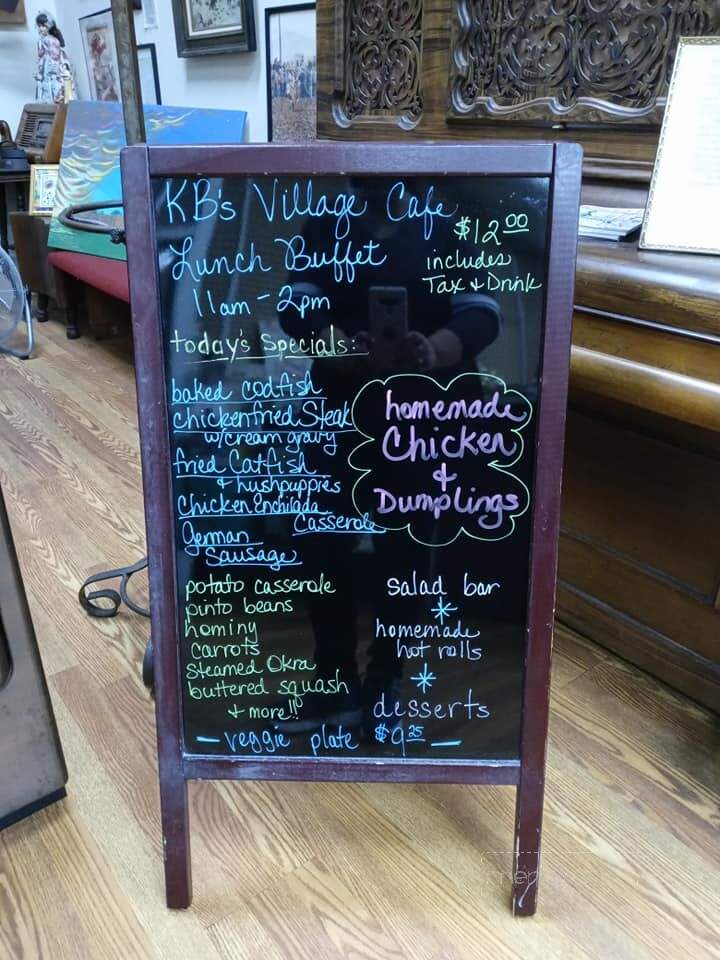 KB's Village Cafe
$12.00
includes
Tax & Drink
Lunch Buffet
11am - 2pm
today's Specials:
baked codfish
chickenfried Steak
w/cream gravy
fried Catfish
& hushpuppies
Chicken Enchilada
Casserole
German
Sausage
homemade
Chicken
&
Dumplings
potato casserole
pinto beans
hominy
carrots
Steamed Okra
buttered squash
& more!!
salad bar
*
homemade
hot rolls
*
desserts
- veggie plate $9.25 -